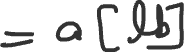 = a [lb]